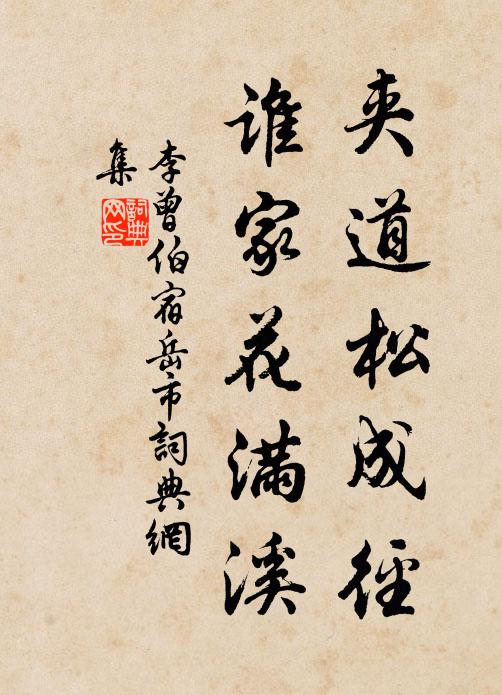 夹道松成径
谁家花满溪
李曾伯宿岳市詞典網
集
詞典
网印